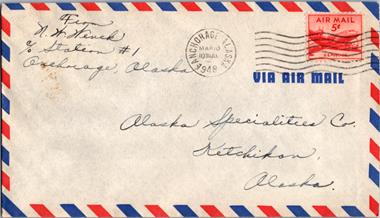 From
N. W. Wench
℅ Station #1
Anchorage, Alaska
ANCHORAGE, ALASKA
MAR 10
1948
AIR MAIL
5¢
VIA AIR MAIL
Alaska Specialities Co.
Ketchikan,
Alaska.